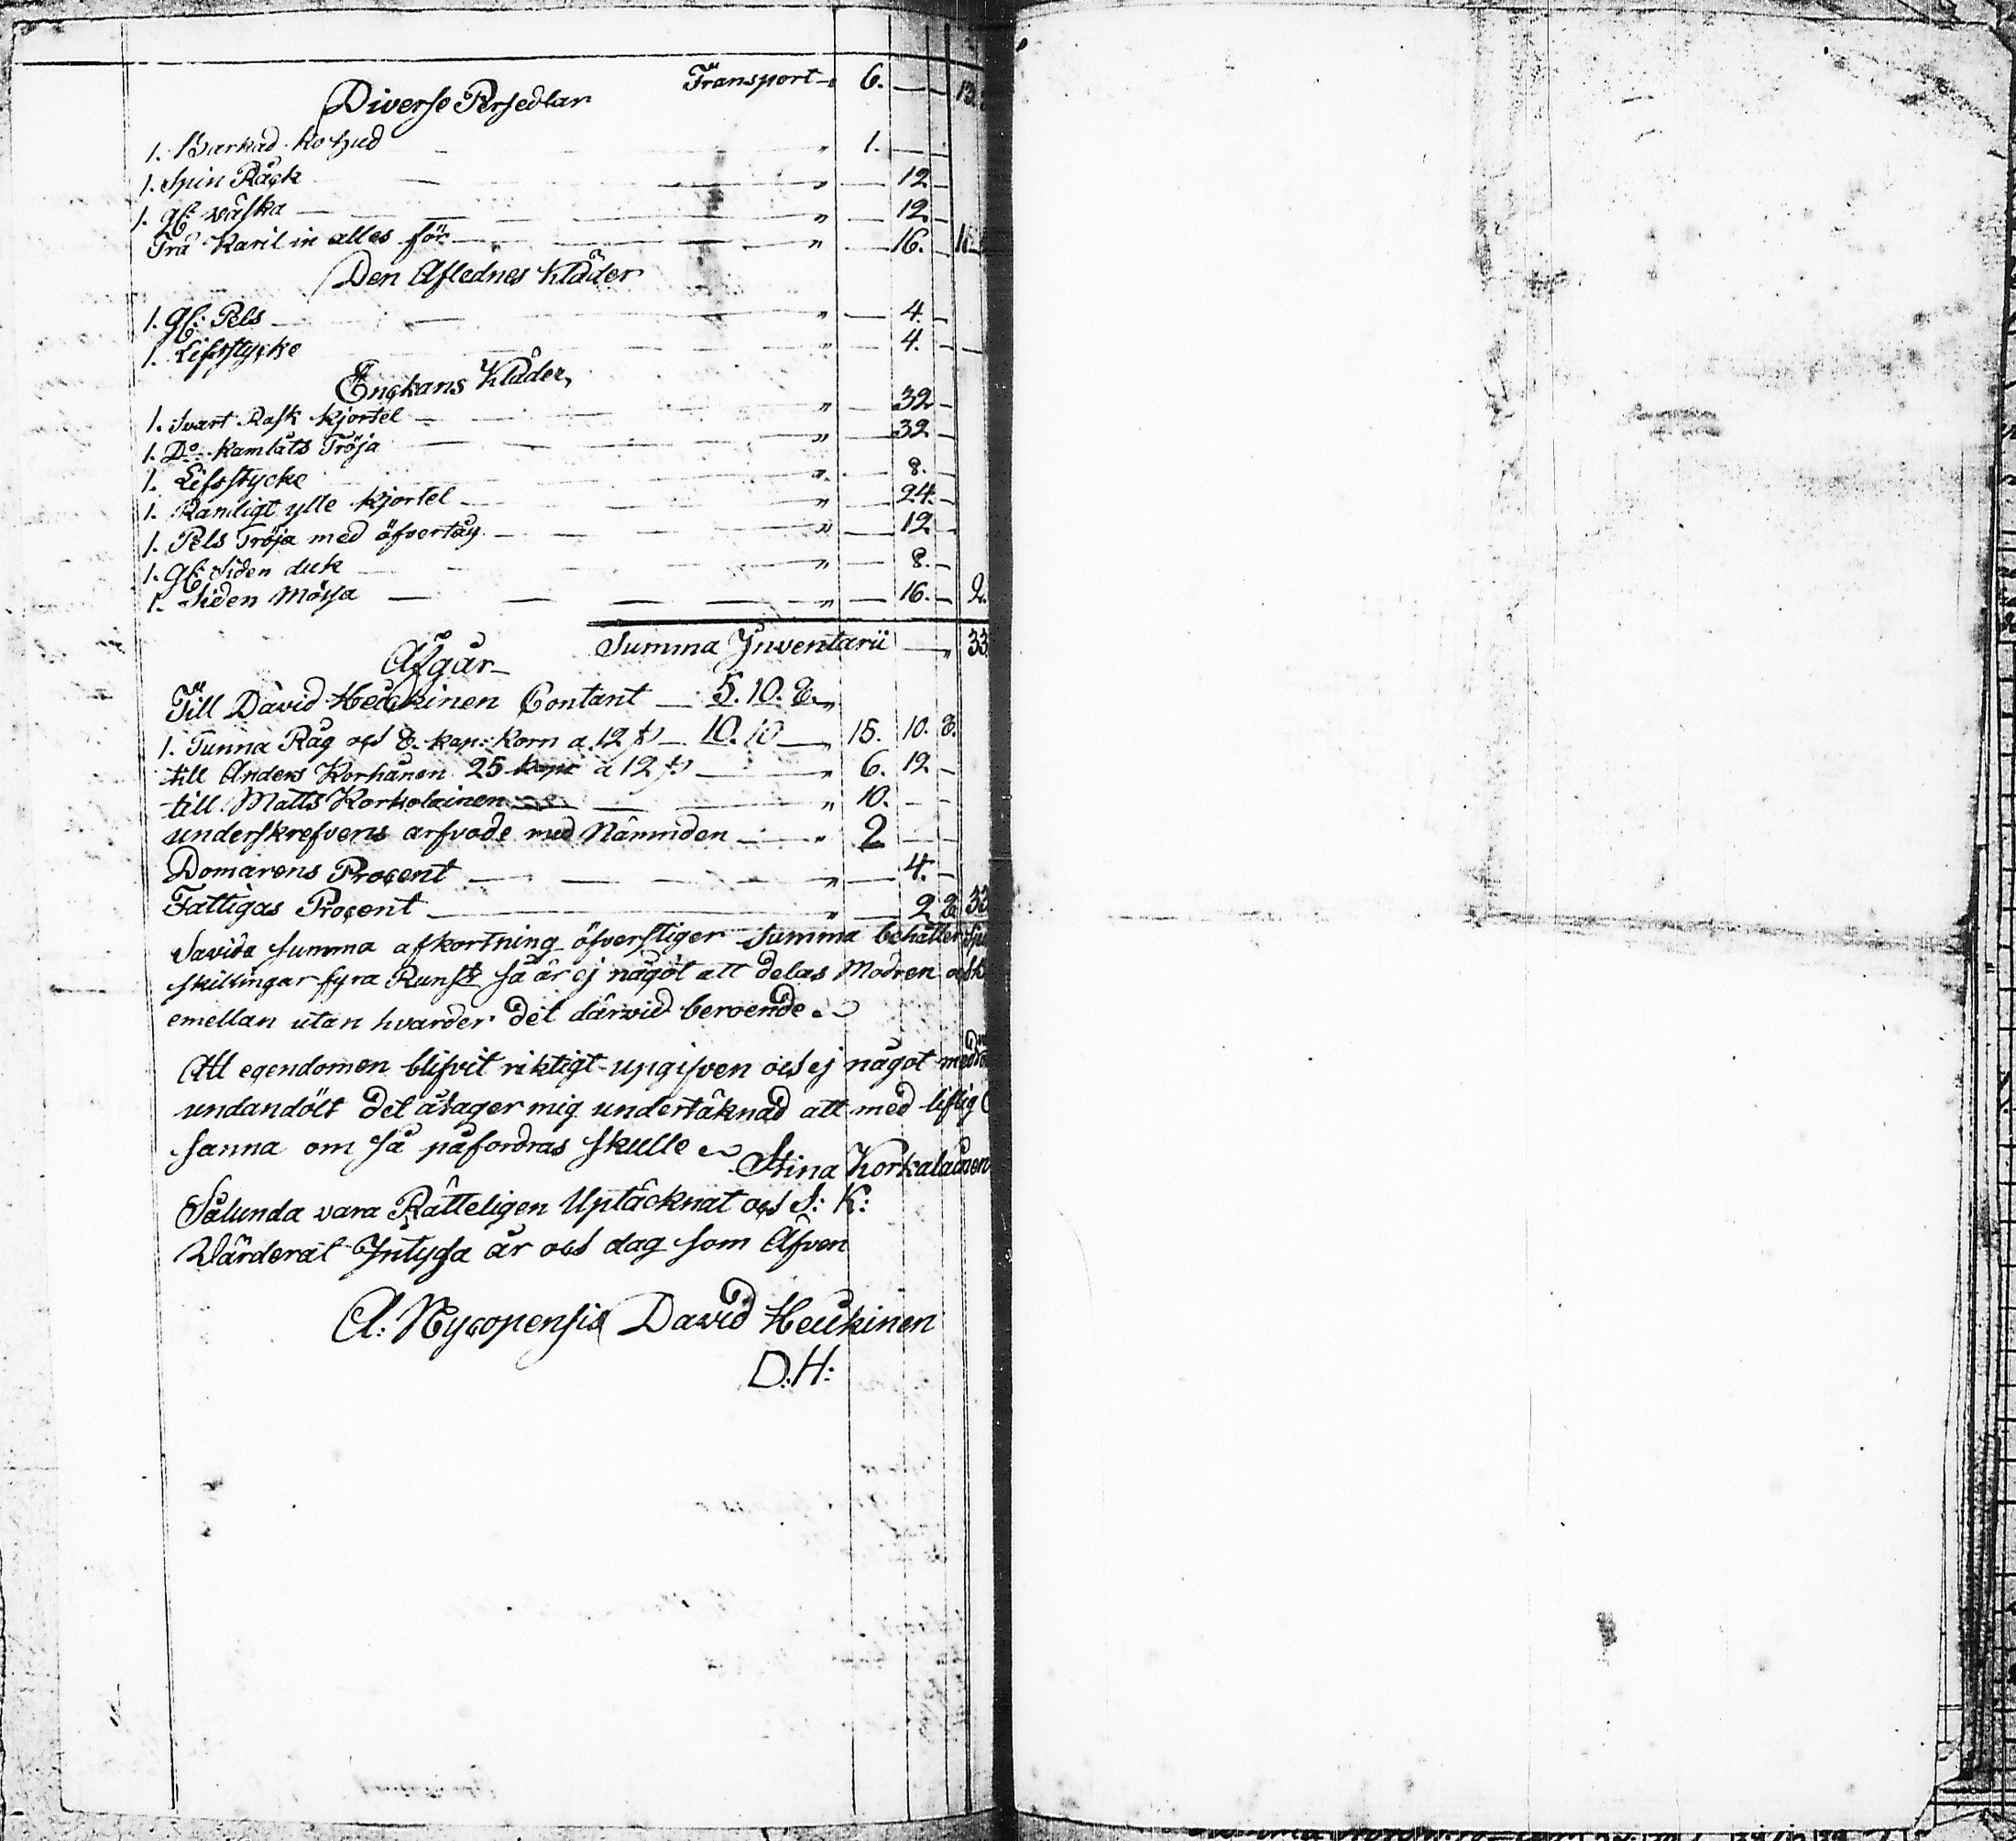 Transport 6. — 13.
Diverse Persedlar
1. Barkad ko hud — " 1. —
1. Spin Råck — " — 12 —
1. gl: väska — " — 12 —
Trä Karil in alles för — " — 16. 11
Den Aflednes Kläder
1. gl: Pels — " — 4. —
1. Lifsstycke — " — 4. —
Enckans Kläder,
1. Svart Rask kjortel — " — 32 —
1. Do kamlåts Tröja — " — 32 —
1. Lifsstycke — " — 8. —
1. Randigt ylle kjortel — " — 24. —
1. Pels Tröja med öfvertåg — " — 12 —
1. gl: Siden duk — " — 8. —
1. Siden Mössa — " — 16. — 2.
Summa Inventarii — " 33
Afgår
Till David Heuckinen Contant — 5. 10. 8. "
1. Tunna Råg och 8. kap: Korn a 12 — 10. 10 — " 15. 10. 8.
till Anders Korhånen 25 kapr a 12 — " 6. 12 —
till Matts Korkolainen — " 10. — —
underskrefvens arfvode med Nämnden — " 2 —
Domarens Procent — " — 4. —
Fattigas Procent — " — 2 8 33
Savida summa afkortning öfverstiger summa behåller
skillingar fyra Runst så är ej något att delas Modren och
emellan utan hvarder det därvid beroende
Att egendomen blifvit riktigt upgifven och ej något med
undandölt det åtager mig undertäknad att med liflig
sanna om så påfordras skulle Stina Korkalainen
Sålunda vara Rätteligen Uptäcknat och S: K:
Värderat Intyga år och dag som Äfven
A: Nycopensis David Heukinen
D. H: